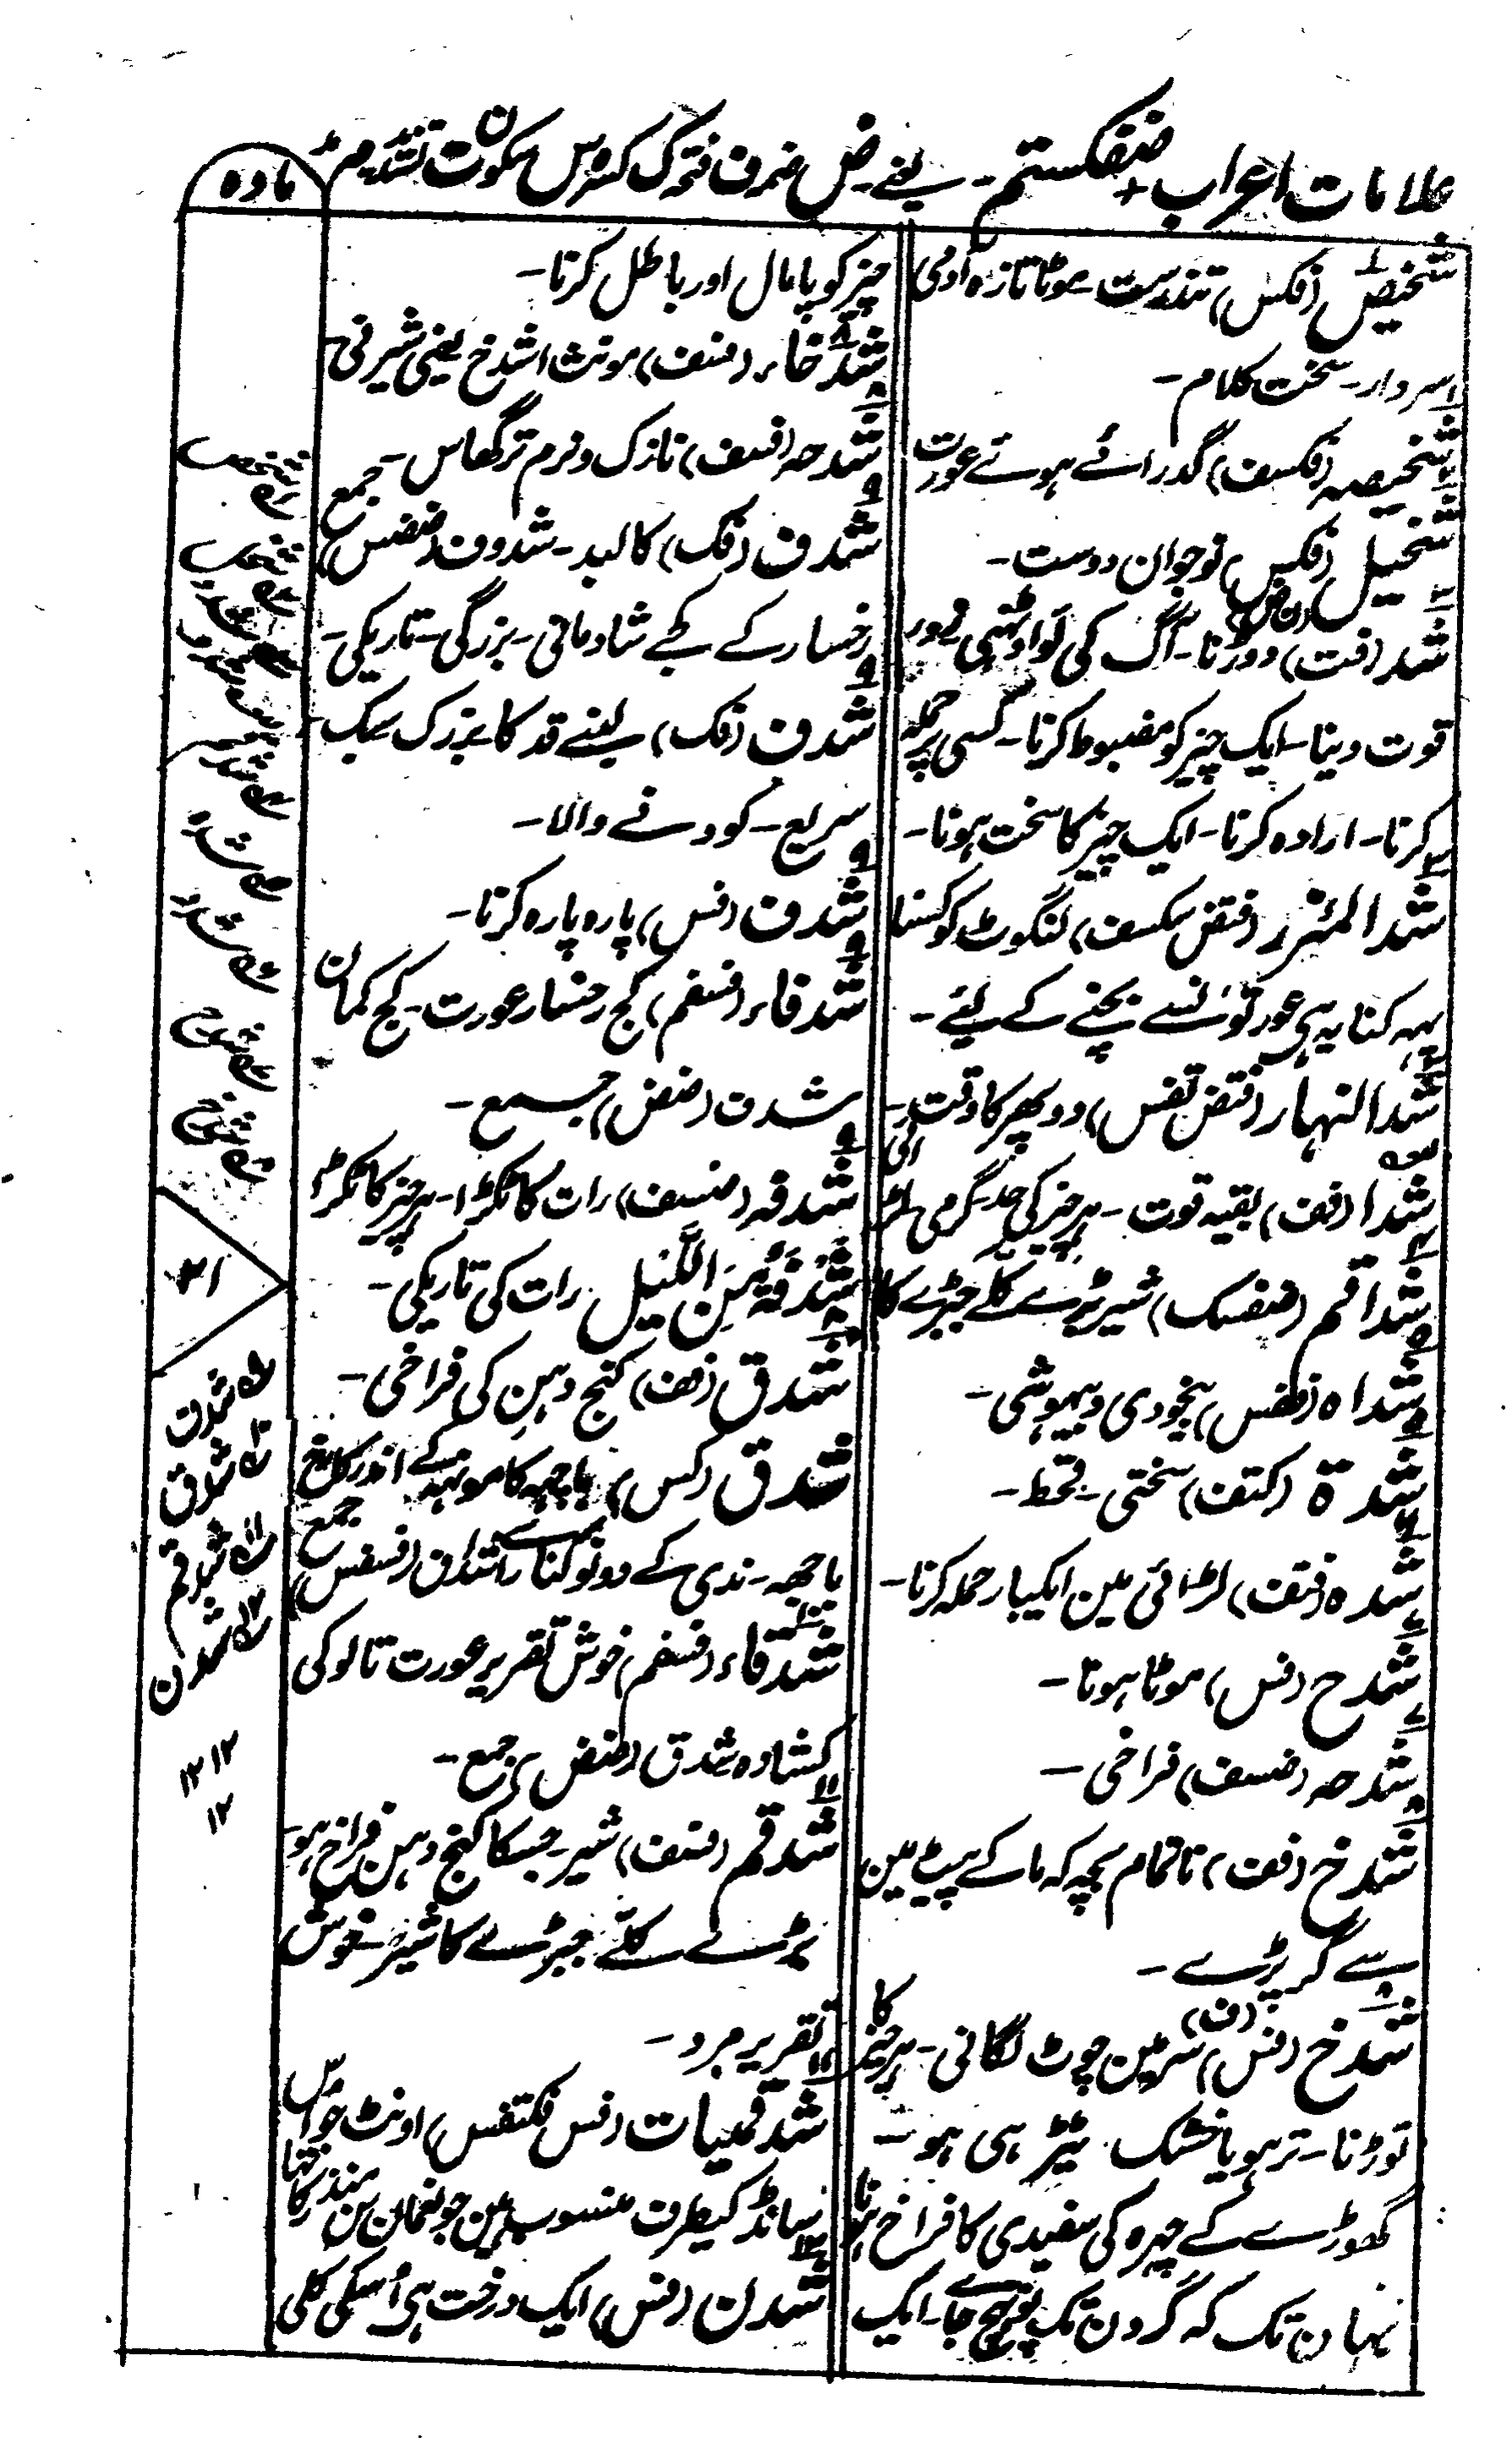 علامات اعراب + ضفکستم - یعنے ض ضمہ ف فتحہ ک کسرہ س سکون ت تشدید م مد
مادہ
شخیص (فکس) تندرست - موٹا تازہ آدمی
سردار - سخت کلام -
شخیصہ (فکسف) گدرائے ہوئے عورت
شخیل (فکس) نوجوان دوست -
شد (فت) (ن ض) دوڑنا - آگ کی لَو اوٹھنی
قوت دینا - ایک چیز کو مضبوط کرنا - کسی پر حملہ
کرنا - ارادہ کرنا - ایک چیز کا سخت ہونا -
شد المئزر (فتفض سکسف) لنگوٹ کو کسنا
یہہ کنایہ ہی عورتونسے بچنے کے لیئے -
شد النہار (فتفض تفس) دوپہر کا وقت -
شدا (فف) بقیہ قوت - ہر چیز کی حد - گرمی
شداقم (ضفسک) شیر بڑے کلے جبڑے کا
شداہ (ضفس) بیخودی و بیہوشی -
شدة (کتف) سختی - قحط -
شدہ (فتف) لڑائی مین ایکبار حملہ کرنا -
شدح (فس) موٹا ہونا -
شدحہ (ضسف) فراخی -
شدخ (فف) ناتمام بچہ کہ ما کے پیٹ مین
سے گر پڑے -
شدخ (فس) (ف) سر مین چوٹ لگانی - ہر چیز کا
توڑنا - تر ہو یا خشک ٹیڑہی ہو -
گھوڑے کے چہرہ کی سفیدی کا فراخ ہونا
یہان تک کہ گردن تک پہونچ جاے - ایک
چیز کو پامال اور باطل کرنا -
شدخاء (فسف) مونث اشدخ یعنی شیرنی
شدحہ (فسف) نازک و نرم تر گھاس -
شدف (فک) کالبد - شدوف (ضضس) جمع
رخسار کے کجے شادمانی - بزرگی - تاریکی -
شدف (فک) لینے قد کا بزرک سبک
سریع - کودنے والا -
شدف (فس) پارہ پارہ کرنا -
شدفاء (فسفم) کج رخسار عورت - کج کمان
شدف (ضض) جمع -
شدفہ (ضسف) رات کا ٹکڑا - ہر چیز کا ٹکڑا
شُدْفَةٌ مِنَ اللَّیْل رات کی تاریکی -
شدق (فف) کنج دہن کی فراخی -
شدق (کس) باچھہ کا مونہہ کے اندر کا رخ
باچھہ - ندی کے دونو کنارے اشداق (فسفس) جمع
شدقاء (فسفم) خوش تقریر عورت تالو کی
کشادہ شدق (ضض) جمع -
شدقم (فسف) شیر - جسکا کنج دہن فراخ ہو -
بڑے کلے جبڑے کا شیر - خوش
تقریر مرد -
شدقمیات (فس فکتفس) اونٹ جو اس
سانڈ کیطرف منسوب ہین جو نعمان بن منذر رکہتا
شدن (فس) ایک درخت ہی اُسکی کلی
۳۱
شدق
شدق
شدقم
شدن
۱۲ ۱۲
۱۲